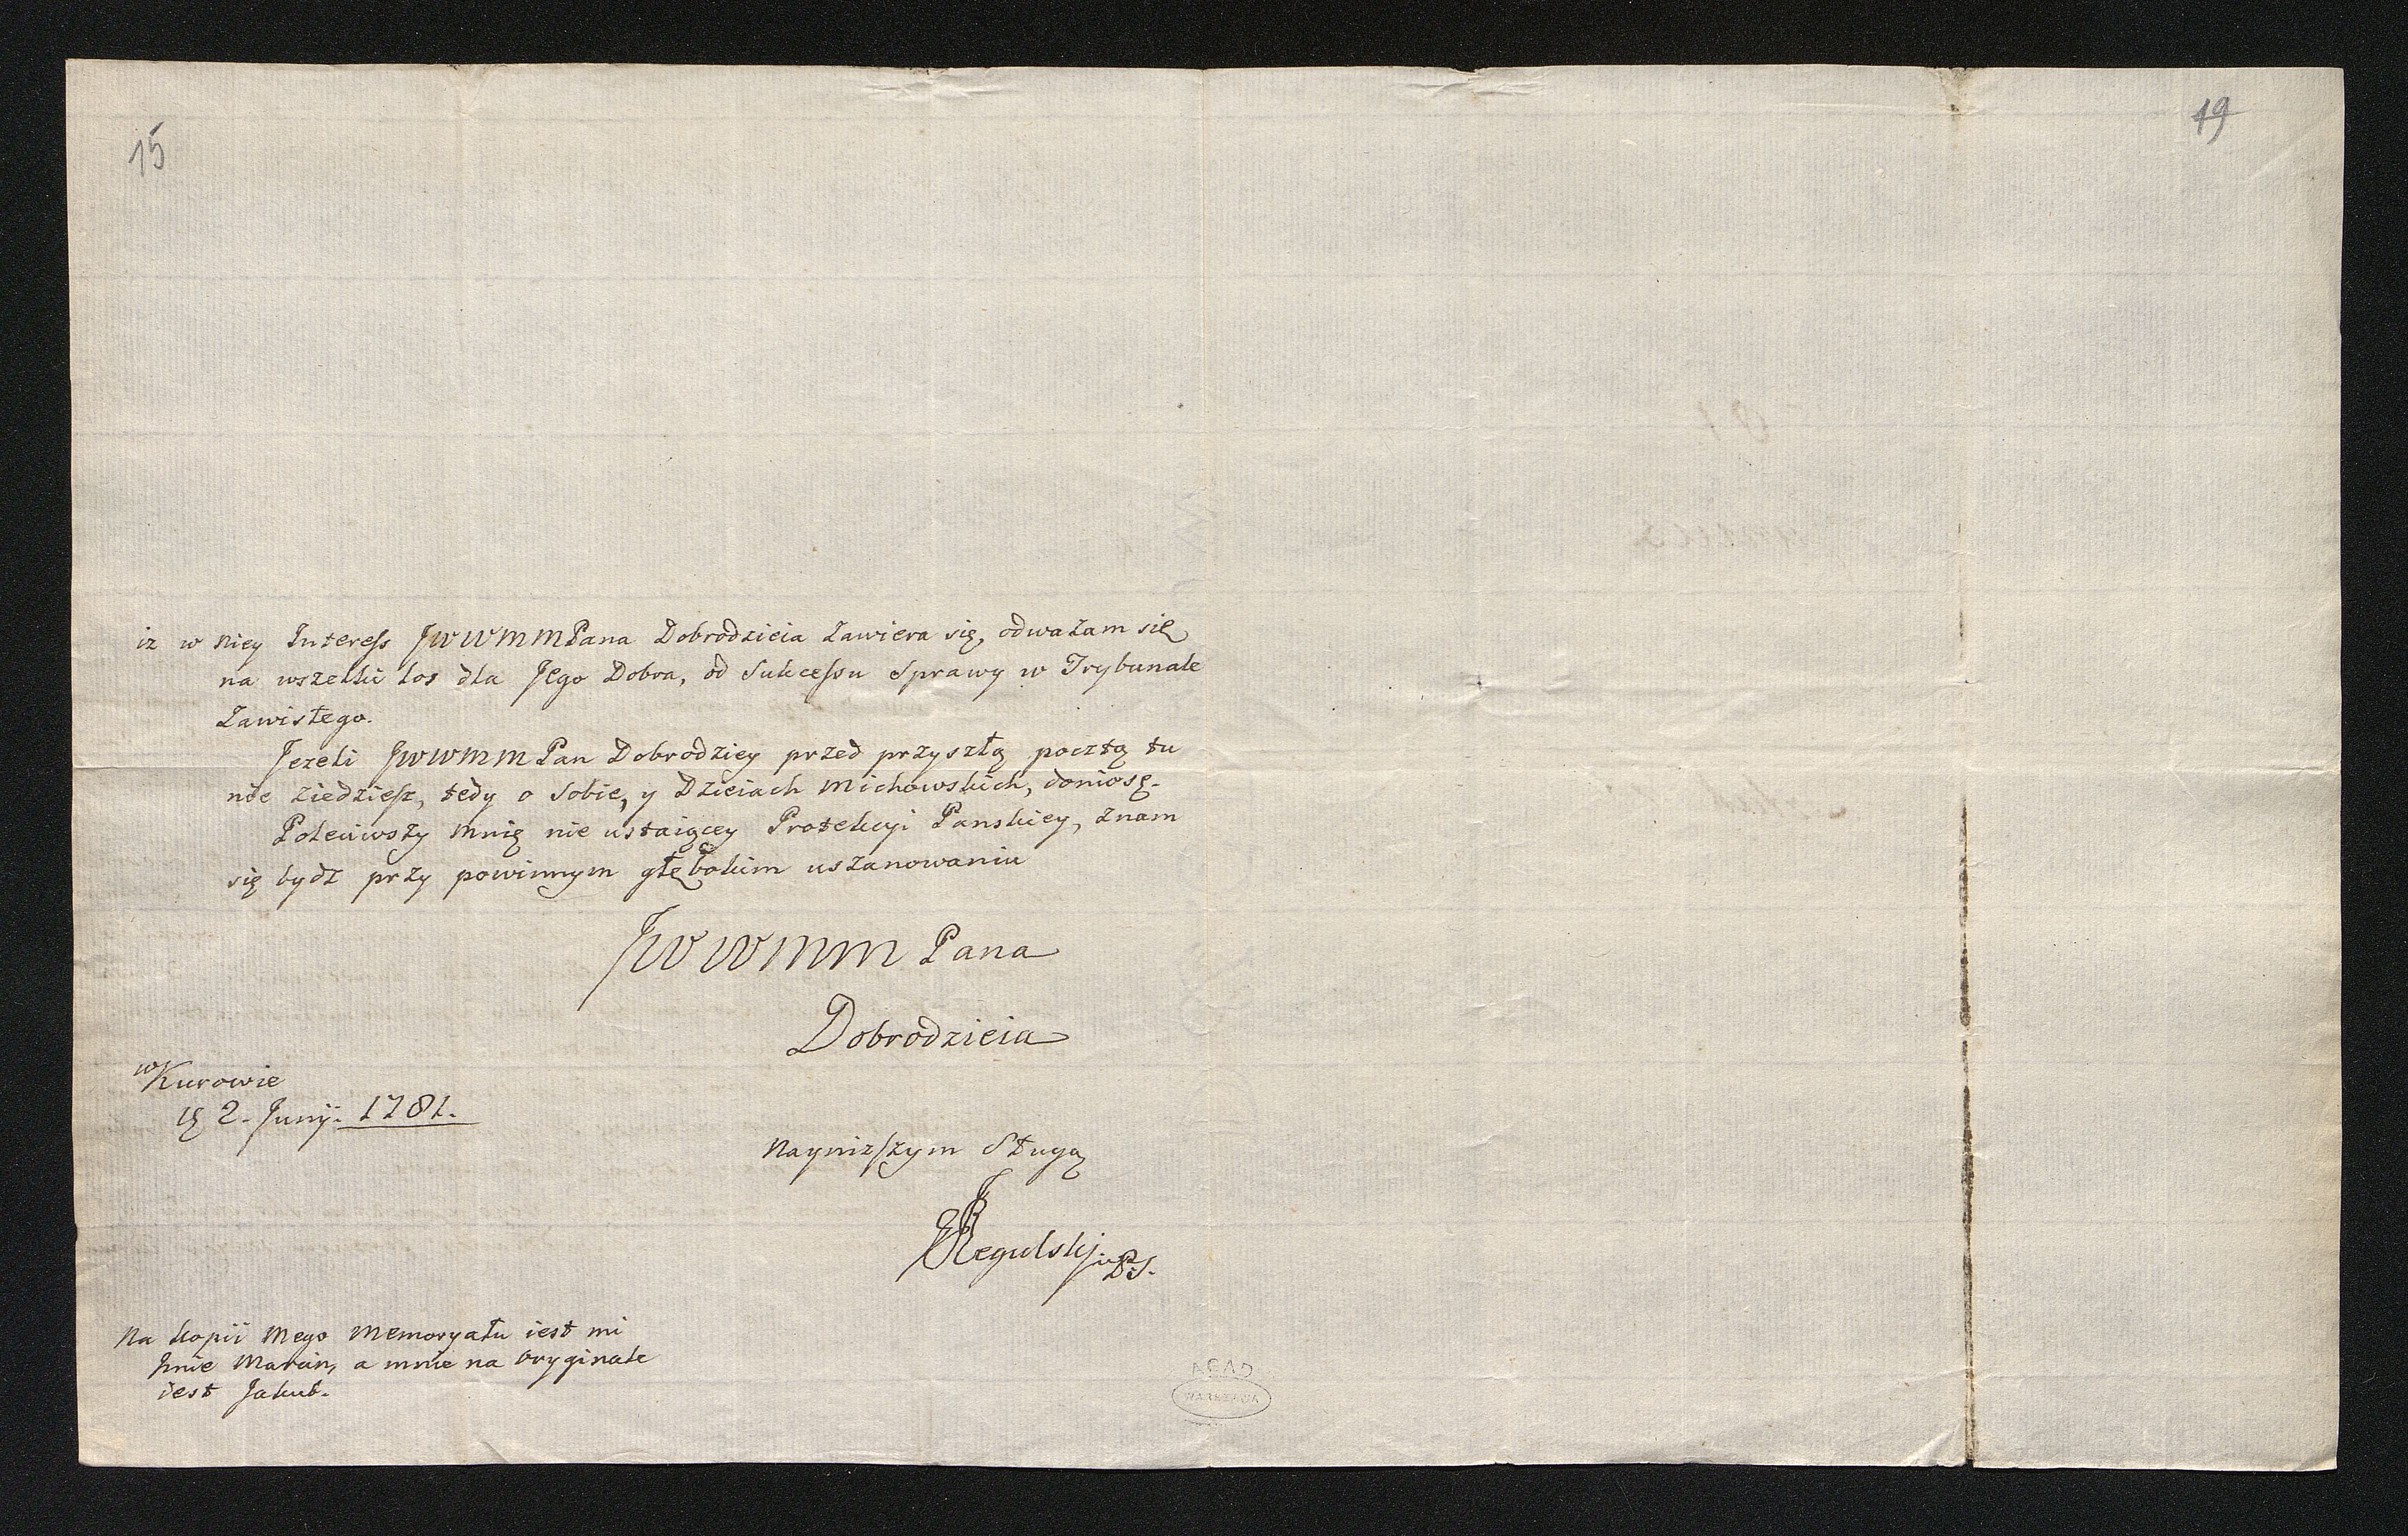 15
19
iz w niey Interess JWWMMPana Dobrodzieia zawiera się, odważam się
na wszelki los dla Jego Dobra, od Sukcessu Sprawy w Trybunale
Zawisłego.
Jezeli JWWMM Pan Dobrodziey przed przyszłą pocztą tu
nie ziedziesz, tedy o Sobie, y Dzieciach Michowskich, doniosę.
Poleciwszy mnię nie ustaiącey Protekcyi Panskiey, znam
się bydz przy powinnym głębokim uszanowaniu
JWWMM Pana
Dobrodzieia
w Kurowie
2. Junij. 1781.
Nayniższym Sługą
Regulskj
Na kopii mego memoryału iest mi
Jmie Marcin, a mnie na Oryginale
iest Jakub.
ACAD
WARSZAWA